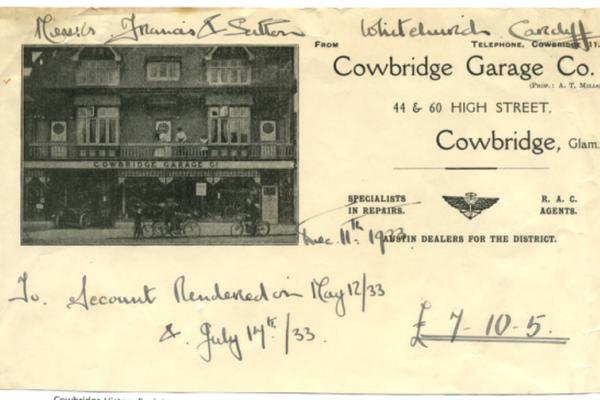 Messrs Francis & Sutton Whitchurch Cardiff
FROM TELEPHONE, COWBRIDGE 11.
Cowbridge Garage Co.
(PROP.: A. T. MILLS
44 & 60 HIGH STREET,
Cowbridge, Glam.
COWBRIDGE GARAGE Co
SPECIALISTS IN REPAIRS.
R. A. C. AGENTS.
Dec. 11th 1933
AUSTIN DEALERS FOR THE DISTRICT.
To Account Rendered on May 12/33
& July 17th/33.
£ 7-10-5.